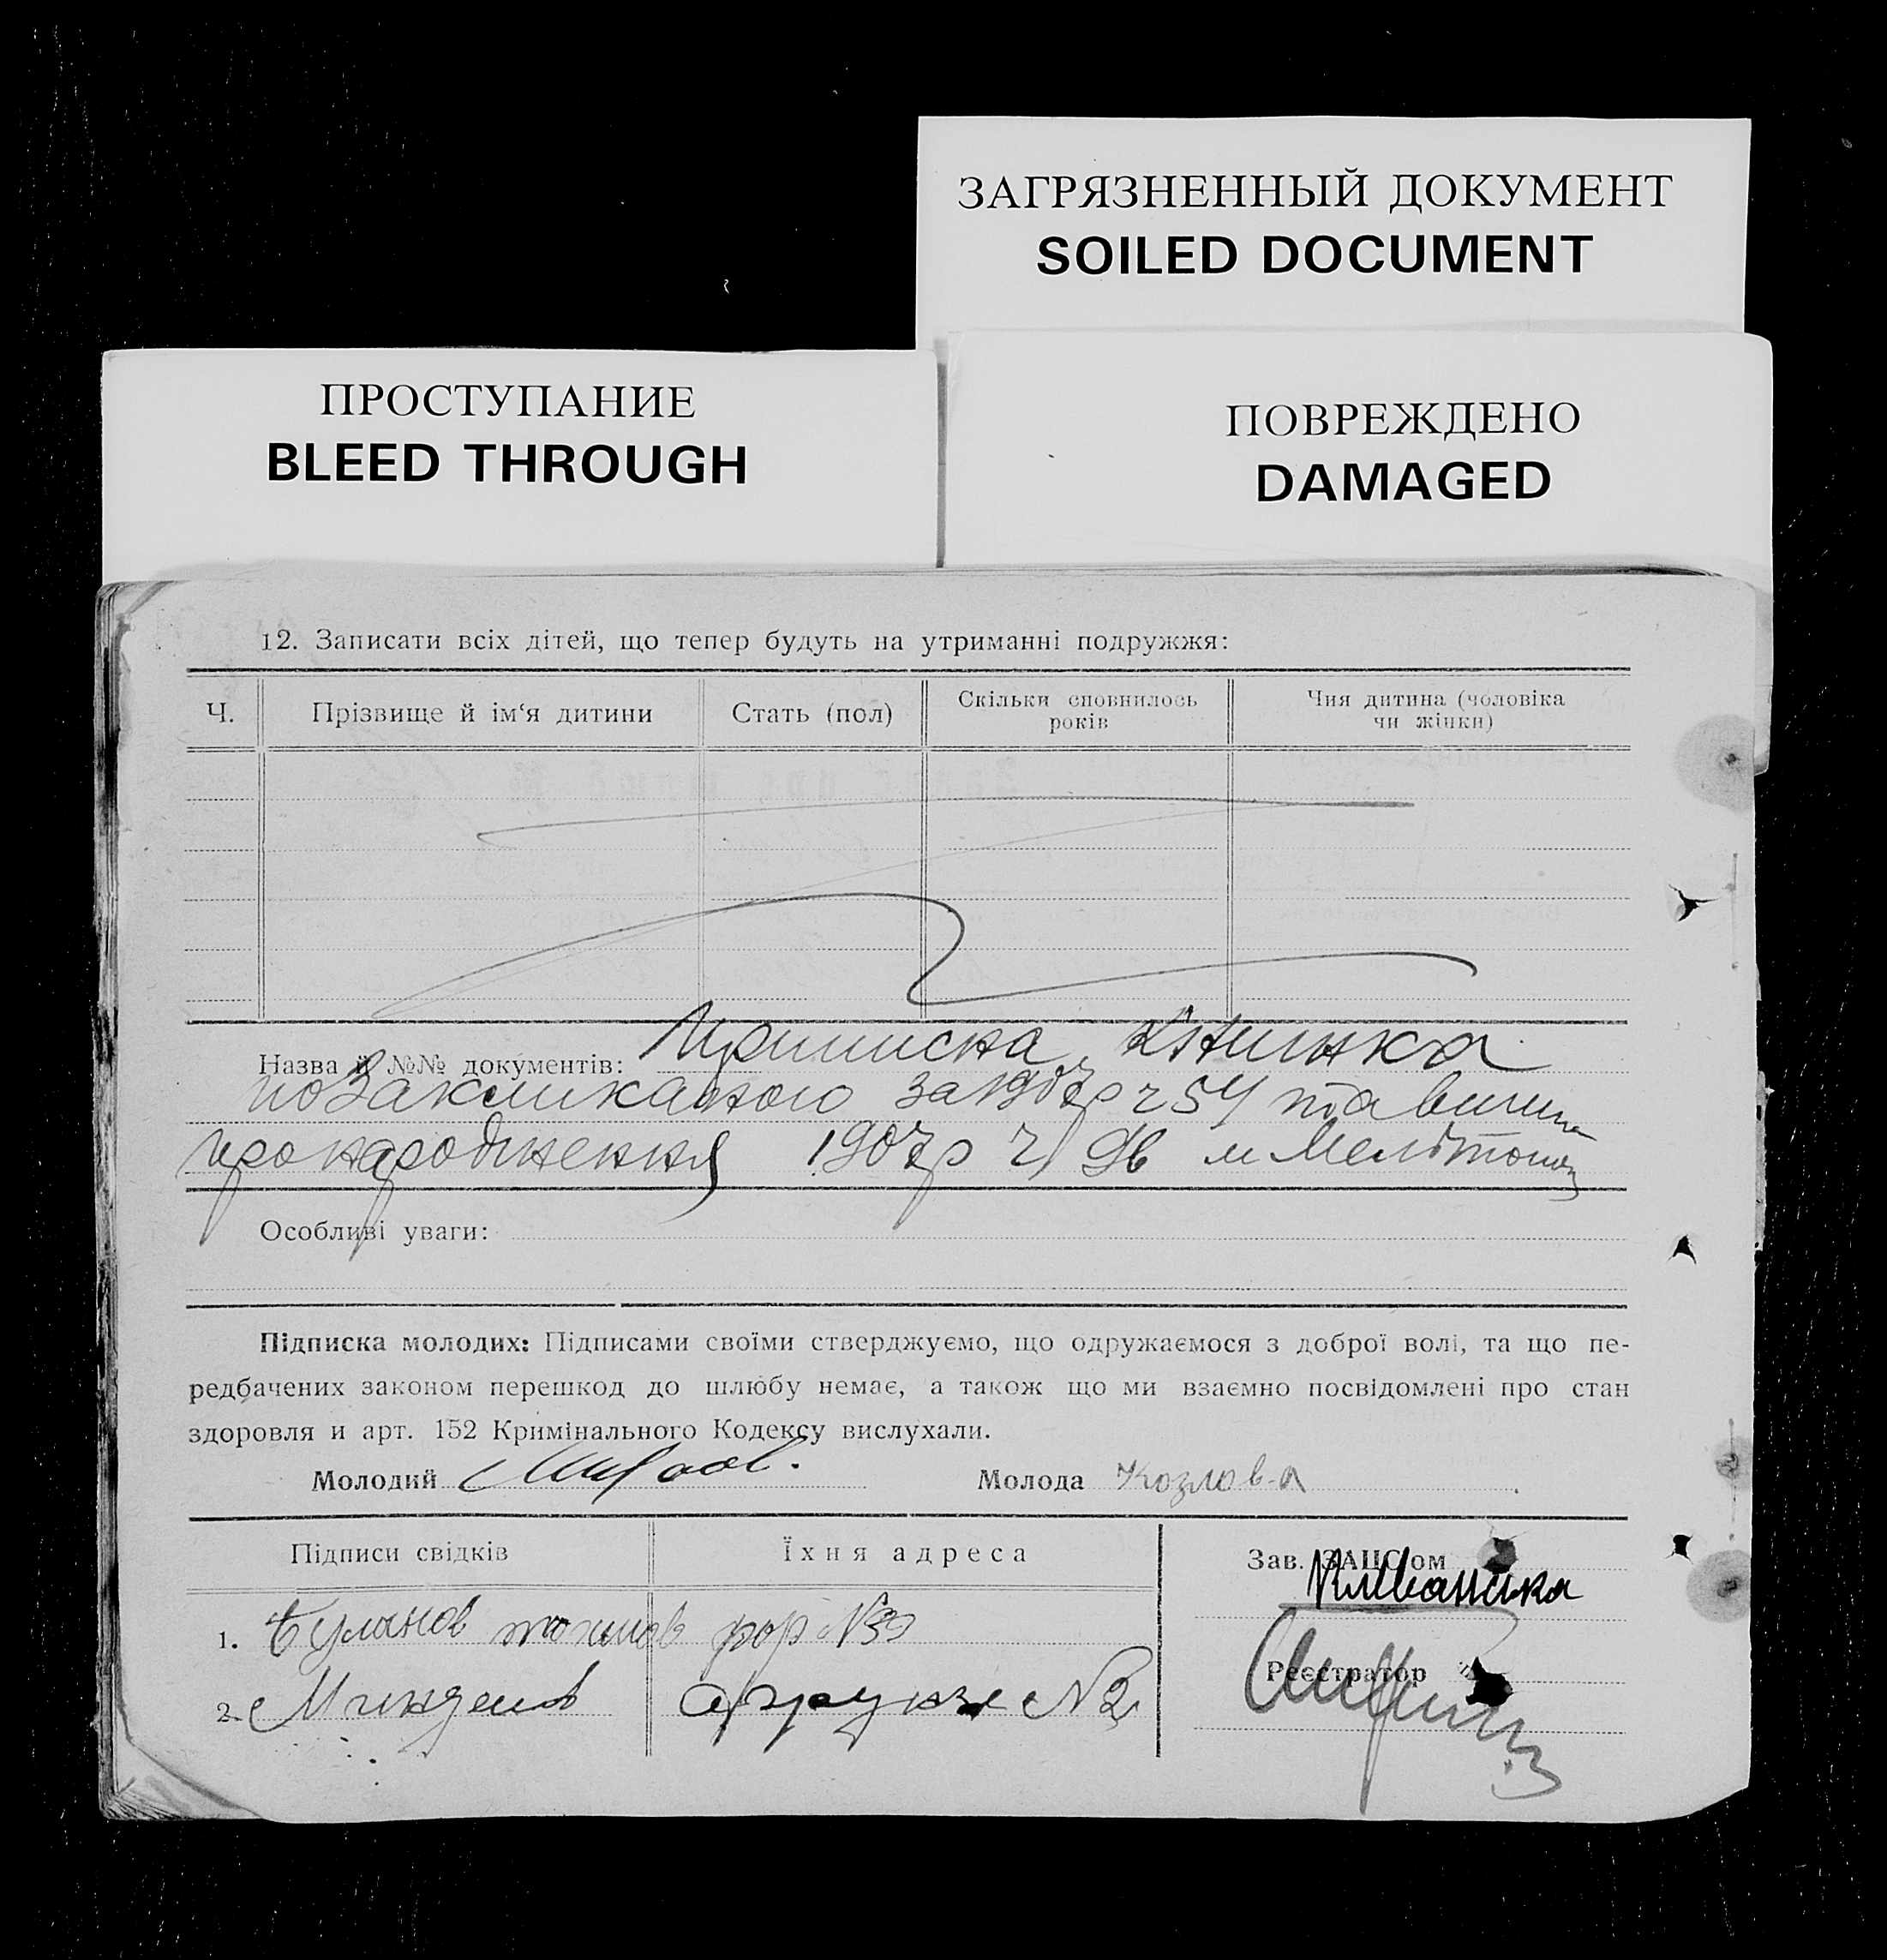 ЗАГРЯЗНЕННЫЙ ДОКУМЕНТ
SOILED DOCUMENT
ПРОСТУПАНИЕ
BLEED THROUGH
ПОВРЕЖДЕНО
DAMAGED
12. Записати всіх дітей, що тепер будуть на утриманні подружжя:
Ч.
Прізвище й ім‘я дитини
Стать (пол)
Скільки сповнилось
років
Чия дитина (чоловіка
чи жінки)
Назва й №№ документів: Приписна книжка
1907р ч 54 та
про народження 1907р ч 96 м Мелітополь
Особливі уваги:
Підписка молодих: Підписами своїми стверджуємо, що одружаємося з доброї волі, та що пе-
редбачених законом перешкод до шлюбу немає, а також що ми взаємно посвідомлені про стан
здоровля и арт. 152 Кримінального Кодексу вислухали.
Молодий
Молода Козлова
Підписи свідків
Їхня адреса
Зав. ЗАПС‘ом
1. Буланов №
2. Фрунзе № 2
Реєстратор